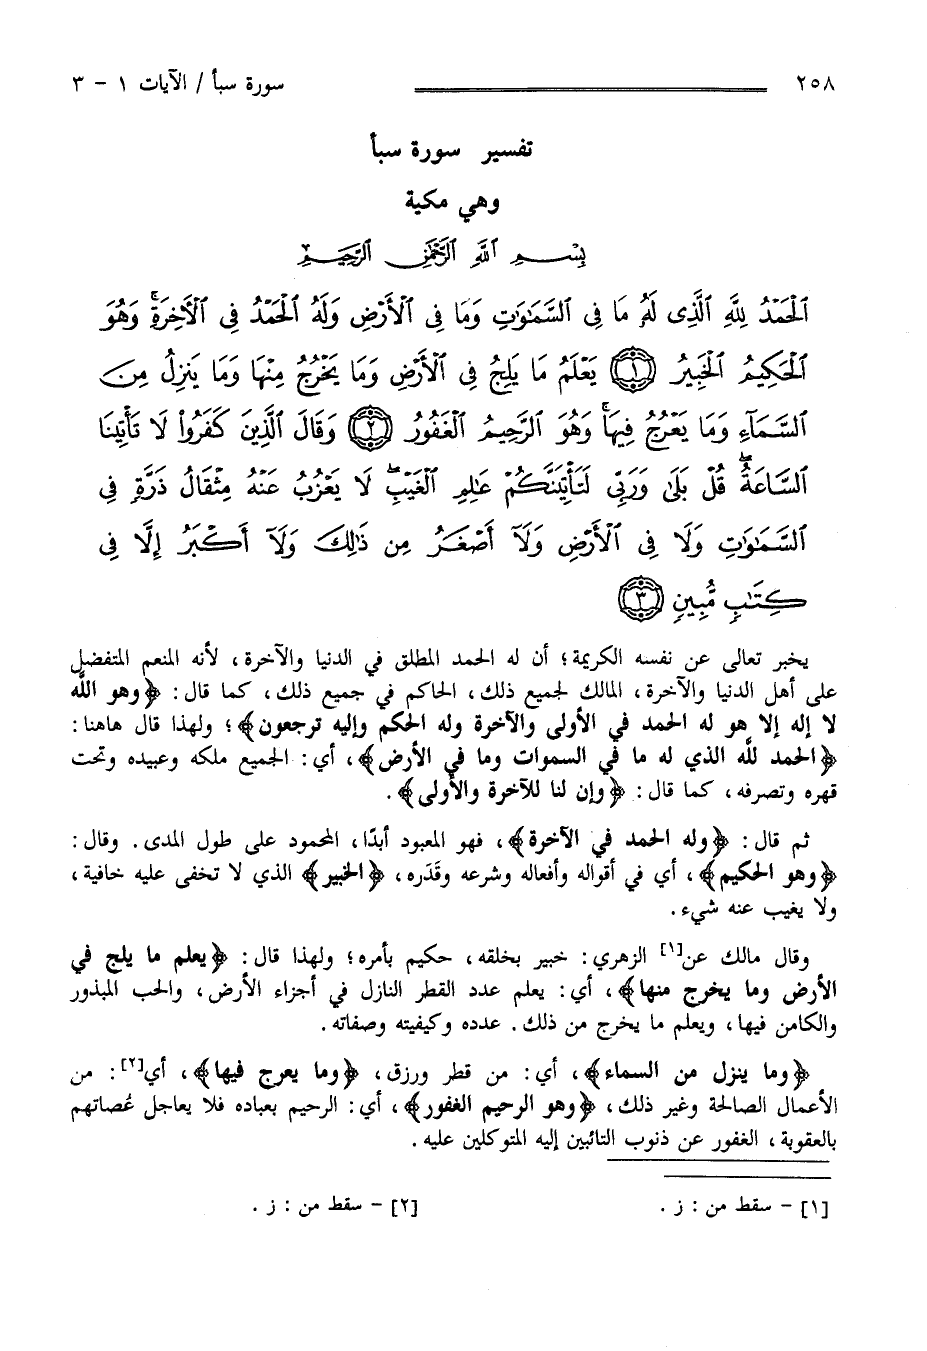 ٢٥٨ سورة سبأ / الآيات ١ - ٣
تفسير سورة سبأ
وهي مكية
بِسْمِ ٱللَّهِ ٱلرَّحْمَٰنِ ٱلرَّحِيمِ
ٱلْحَمْدُ لِلَّهِ ٱلَّذِى لَهُۥ مَا فِى ٱلسَّمَٰوَٰتِ وَمَا فِى ٱلْأَرْضِ وَلَهُ ٱلْحَمْدُ فِى ٱلْءَاخِرَةِ ۚ وَهُوَ
ٱلْحَكِيمُ ٱلْخَبِيرُ ﴿١﴾ يَعْلَمُ مَا يَلِجُ فِى ٱلْأَرْضِ وَمَا يَخْرُجُ مِنْهَا وَمَا يَنزِلُ مِنَ
ٱلسَّمَآءِ وَمَا يَعْرُجُ فِيهَا ۚ وَهُوَ ٱلرَّحِيمُ ٱلْغَفُورُ ﴿٢﴾ وَقَالَ ٱلَّذِينَ كَفَرُوا۟ لَا تَأْتِينَا
ٱلسَّاعَةُ ۖ قُلْ بَلَىٰ وَرَبِّى لَتَأْتِيَنَّكُمْ عَٰلِمِ ٱلْغَيْبِ ۖ لَا يَعْزُبُ عَنْهُ مِثْقَالُ ذَرَّةٍ فِى
ٱلسَّمَٰوَٰتِ وَلَا فِى ٱلْأَرْضِ وَلَآ أَصْغَرُ مِن ذَٰلِكَ وَلَآ أَكْبَرُ إِلَّا فِى
كِتَٰبٍ مُّبِينٍ ﴿٣﴾
يخبر تعالى عن نفسه الكريمة؛ أن له الحمد المطلق في الدنيا والآخرة، لأنه المنعم المتفضل
على أهل الدنيا والآخرة، المالك لجميع ذلك، الحاكم في جميع ذلك، كما قال: ﴿وهو الله
لا إله إلا هو له الحمد في الأولى والآخرة وله الحكم وإليه ترجعون﴾؛ ولهذا قال هاهنا:
﴿الحمد لله الذي له ما في السموات وما في الأرض﴾، أي: الجميع ملكه وعبيده وتحت
قهره وتصرفه، كما قال: ﴿وإن لنا للآخرة والأولى﴾.
ثم قال: ﴿وله الحمد في الآخرة﴾، فهو المعبود أبدًا، المحمود على طول المدى. وقال:
﴿وهو الحكيم﴾، أي في أقواله وأفعاله وشرعه وقَدَره، ﴿الخبير﴾ الذي لا تخفى عليه خافية،
ولا يغيب عنه شيء.
وقال مالك عن[١] الزهري: خبير بخلقه، حكيم بأمره؛ ولهذا قال: ﴿يعلم ما يلج في
الأرض وما يخرج منها﴾، أي: يعلم عدد القطر النازل في أجزاء الأرض، والحب المبذور
والكامن فيها، ويعلم ما يخرج من ذلك. عدده وكيفيته وصفاته.
﴿وما ينزل من السماء﴾، أي: من قطر ورزق، ﴿وما يعرج فيها﴾، أي[٢]: من
الأعمال الصالحة وغير ذلك، ﴿وهو الرحيم الغفور﴾، أي: الرحيم بعباده فلا يعاجل عُصاتهم
بالعقوبة، الغفور عن ذنوب التائبين إليه المتوكلين عليه.
[١] - سقط من: ز. [٢] - سقط من: ز.